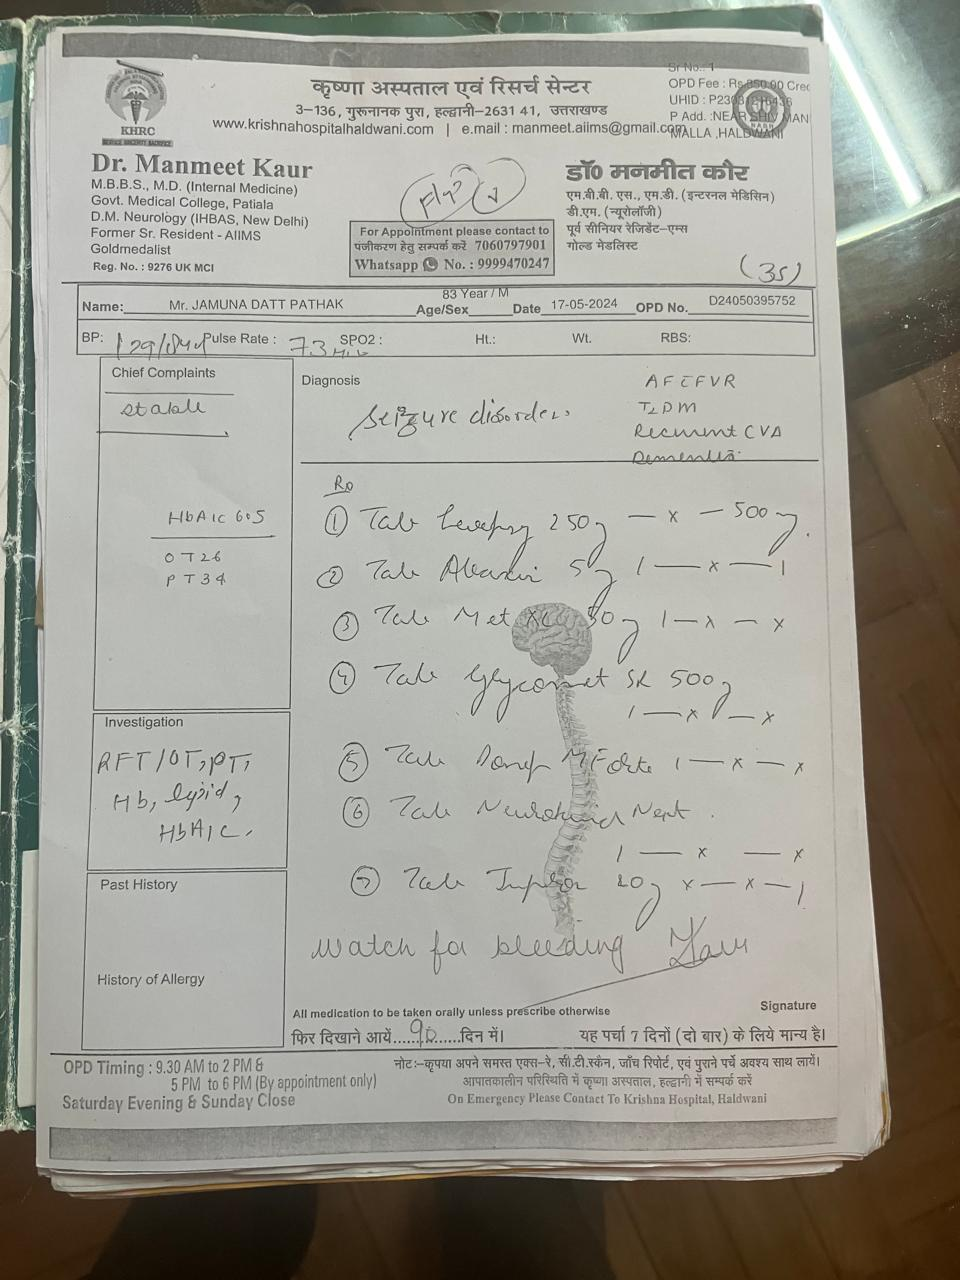 कृष्णा अस्पताल एवं रिसर्च सेन्टर
3–136, गुरूनानक पुरा, हल्द्वानी–2631 41, उत्तराखण्ड
www.krishnahospitalhaldwani.com | e.mail : manmeet.aiims@gmail.com
Sr No.: 1
OPD Fee : Rs
UHID :
P Add. :NEAR SHIV MAN
MALLA ,HALDWANI
KHRC
Dr. Manmeet Kaur
M.B.B.S., M.D. (Internal Medicine)
Govt. Medical College, Patiala
D.M. Neurology (IHBAS, New Delhi)
Former Sr. Resident - AIIMS
Goldmedalist
Reg. No. : 9276 UK MCI
For Appointment please contact to
पंजीकरण हेतु सम्पर्क करें 7060797901
Whatsapp No. : 9999470247
डॉ० मनमीत कौर
एम.बी.बी. एस., एम.डी. (इन्टरनल मेडिसिन)
डी.एम. (न्यूरोलॉजी)
पूर्व सीनियर रेजिडेंट–एम्स
गोल्ड मेडलिस्ट
(35)
Name: Mr. JAMUNA DATT PATHAK 83 Year / M Age/Sex Date 17-05-2024 OPD No. D24050395752
BP: Pulse Rate : 73 SPO2 : Ht.: Wt. RBS:
Chief Complaints
stable
HbA1C 6.5
OT 26
PT 34
Diagnosis
Seizure disorder.
AF c FVR
T2DM
Recurrent CVA
Dementia
Rx
① Tab 250 — x — 500
② Tab 5 1 — x — 1
③ Tab Met XL 50 1 — x — x
④ Tab Glycomet SR 500
1 — x — x
⑤ Tab Donep M Forte 1 — x — x
⑥ Tab Neurokind Next
1 — x — x
⑦ Tab 20 x — x — 1
Watch for bleeding
Investigation
RFT/OT, PT,
Hb, lipid,
HbA1C.
Past History
History of Allergy
All medication to be taken orally unless prescribe otherwise
Signature
फिर दिखाने आयें......90......दिन में। यह पर्चा 7 दिनों (दो बार) के लिये मान्य है।
OPD Timing : 9.30 AM to 2 PM &
5 PM to 6 PM (By appointment only)
Saturday Evening & Sunday Close
नोट:–कृपया अपने समस्त एक्स–रे, सी.टी.स्कैन, जाँच रिपोर्ट, एवं पुराने पर्चे अवश्य साथ लायें।
आपातकालीन परिस्थिति में कृष्णा अस्पताल, हल्द्वानी में सम्पर्क करें
On Emergency Please Contact To Krishna Hospital, Haldwani